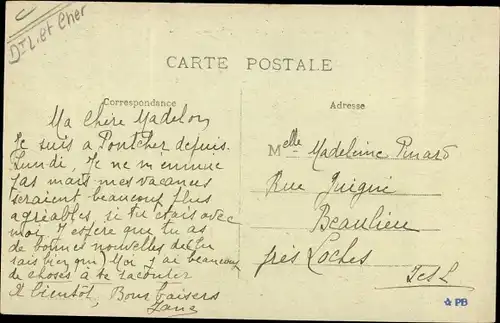 Dt L. et Cher
CARTE POSTALE
Correspondance
Adresse
Ma Chère Madelon
Je suis à Pontcher depuis
Lundi, Je ne m'ennuie
pas mais mes vacances
seraient beaucoup plus
agréables, si tu étais avec
moi, J'espère que tu as
de bonnes nouvelles de (tu
sais bien qui) Moi j'ai beaucoup
de choses à te raconter
A bientôt, Bons baisers
Jane
Melle Madeleine Pinard
Rue Guigné
Beaulieu
près Loches
I et L
PB